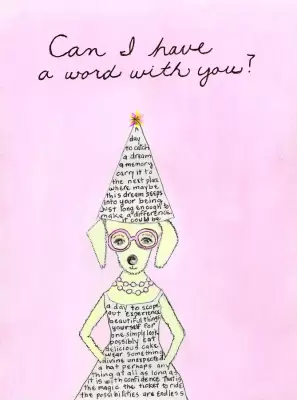 Can I have
a word with you?
a
day
to catch
a dream
a memory
carry it to
the next place
where maybe
this dream seeps
into your being
just long enough to
make a difference
it could be
a day to scope
out experience
beautiful things
yourself for
one simple look
possibly eat
delicious cake
wear something
divine unexpected
a hat perhaps any
thing at all as long as
it is with confidence that is
the magic the ticket to ride
the possibilities are endless